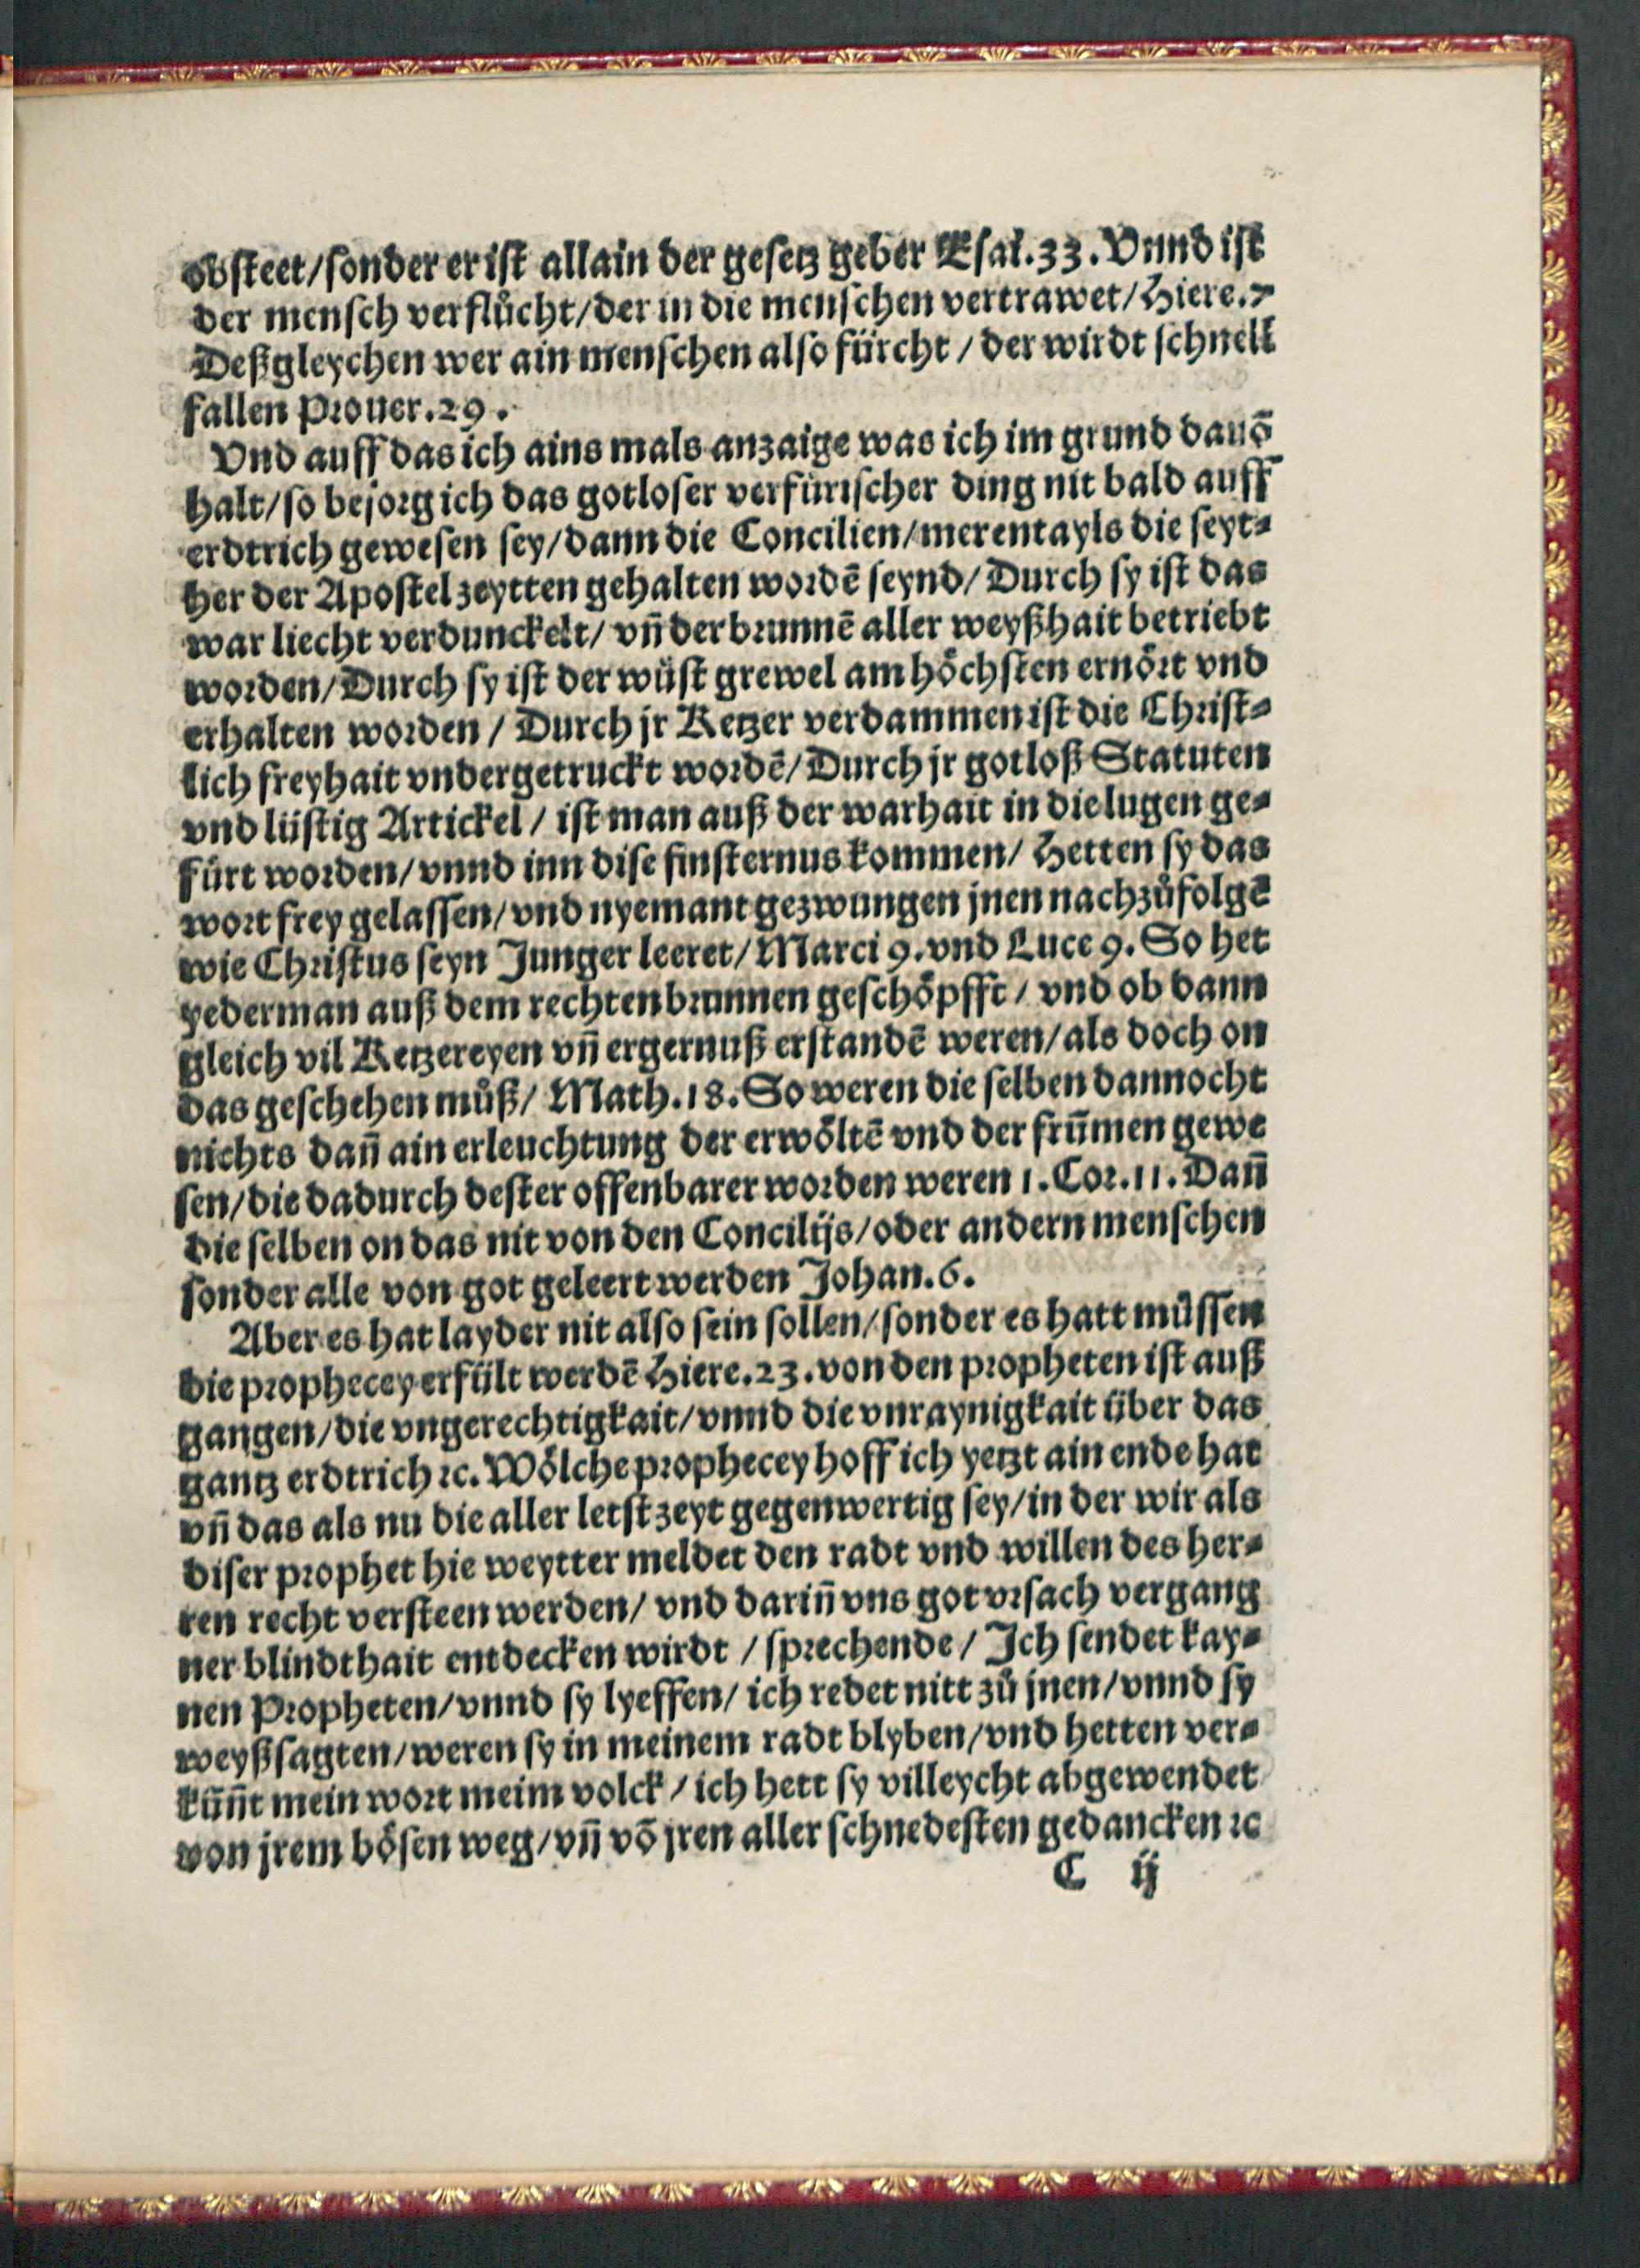 obsteet/sonder er ist allain der gesetz geber Esai.33. Vnnd ist
der mensch verflůcht/der in die menschen vertrawet/Hiere.7
Deßgleychen wer ain menschen also fürcht/der wirdt schnell
fallen Prouer.29.
Vnd auff das ich ains mals anzaige was ich im grund dauō
halt/so besorg ich das gotloser verfürischer ding nit bald auff
erdtrich gewesen sey/dann die Concilien/merentayls die seyt⸗
her der Apostel zeytten gehalten wordē seynd/Durch sy ist das
war liecht verdunckelt/vn̄ der brunnē aller weyßhait betriebt
worden/Durch sy ist der wüst grewel am höchsten ernört vnd
erhalten worden/Durch jr Ketzer verdammen ist die Christ⸗
lich freyhait vndergetruckt wordē/Durch jr gotloß Statuten
vnd lüstig Artickel/ist man auß der warhait in die lugen ge⸗
fürt worden/vnnd inn dise finsternus kommen/Hetten sy das
wort frey gelassen/vnd nyemant gezwungen jnen nachzůfolgē
wie Christus seyn Junger leeret/Marci 9.vnd Luce 9. So het
yederman auß dem rechten brunnen geschöpfft/vnd ob dann
gleich vil Ketzereyen vn̄ ergernuß erstandē weren/als doch on
das geschehen můß/Math.18. So weren die selben dannocht
nichts dan̄ ain erleuchtung der erwöltē vnd der frū̄men gewe
sen/die dadurch dester offenbarer worden weren 1.Cor.11. Dan̄
die selben on das nit von den Concilijs/oder andern menschen
sonder alle von got geleert werden Johan.6.
Aber es hat layder nit also sein sollen/sonder es hatt müssen
die prophecey erfült werdē Hiere.23. von den propheten ist auß
gangen/die vngerechtigkait/vnnd die vnraynigkait über das
gantz erdtrich ꝛc. Wölche prophecey hoff ich yetzt ain ende hat
vn̄ das als nu die aller letst zeyt gegenwertig sey/in der wir als
diser prophet hie weytter meldet den radt vnd willen des her⸗
ren recht versteen werden/vnd darin̄ vns got vrsach vergang
ner blindthait entdecken wirdt/sprechende/Ich sendet kay⸗
nen Propheten/vnnd sy lyeffen/ich redet nitt zů jnen/vnnd sy
weyßsagten/weren sy in meinem radt blyben/vnd hetten ver⸗
kün̄t mein wort meim volck/ich hett sy villeycht abgewendet
von jrem bösen weg/vn̄ vō jren aller schnedesten gedancken ꝛc
C ij